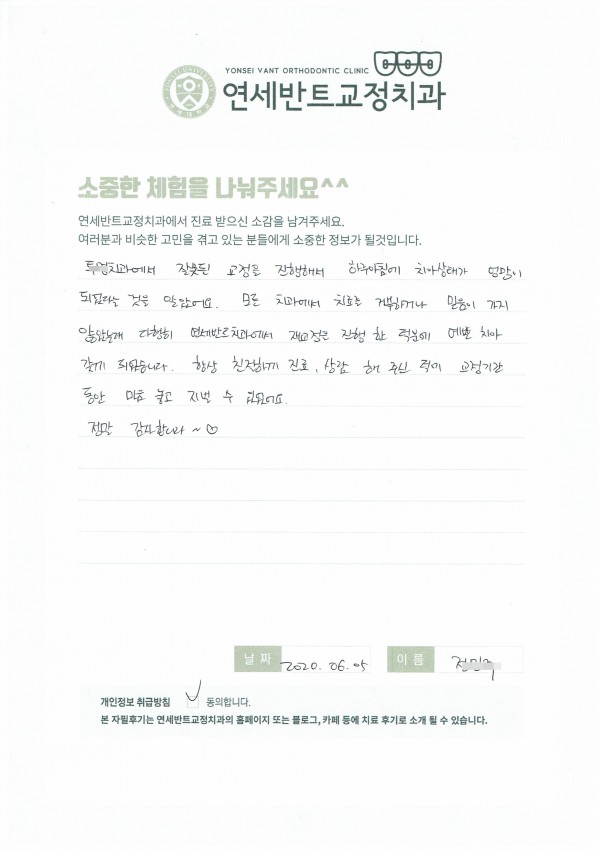 YONSEI VANT ORTHODONTIC CLINIC
연세반트교정치과
소중한 체험을 나눠주세요^^
연세반트교정치과에서 진료 받으신 소감을 남겨주세요.
여러분과 비슷한 고민을 겪고 있는 분들에게 소중한 정보가 될것입니다.
치과에서 잘못된 교정을 진행해서 하루아침에 치아상태가 엉망이
되었다는 것을 알았어요. 모든 치과에서 치료를 거부하거나 믿음이 가지
않았는데 다행히 연세반트치과에서 재교정을 진행 한 덕분에 예쁜 치아
갖게 되었습니다. 항상 친절하게 진료, 상담 해 주신 덕에 교정기간
동안 마음 놓고 지낼 수 있었어요.
정말 감사합니다 ~ ♡
날 짜 2020. 06. 05 이 름
개인정보 취급방침 ✓ 동의합니다.
본 자필후기는 연세반트교정치과의 홈페이지 또는 블로그, 카페 등에 치료 후기로 소개 될 수 있습니다.